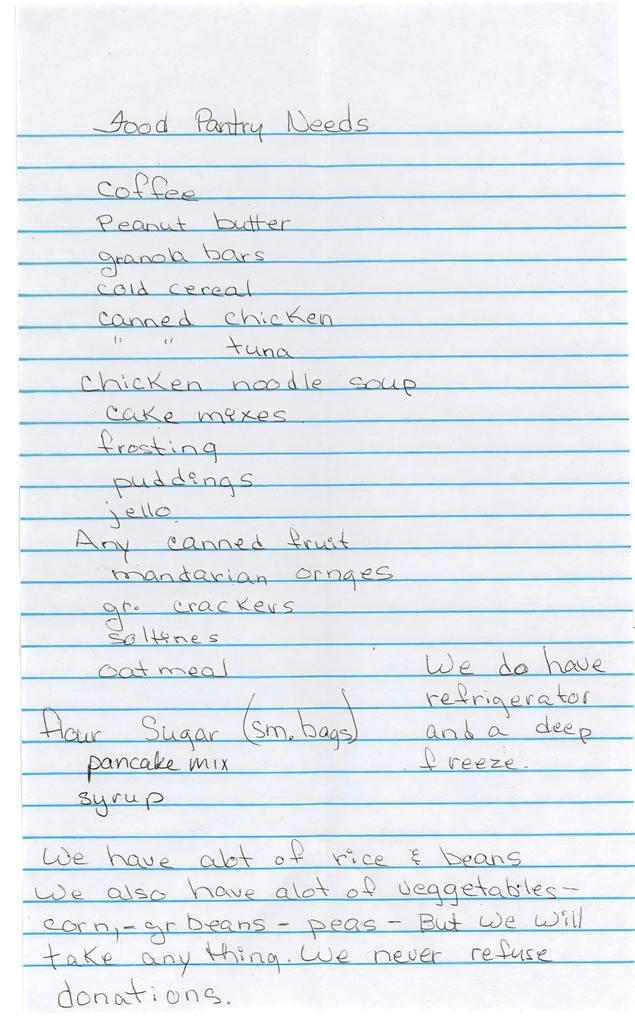 Food Pantry Needs
coffee
Peanut butter
granola bars
cold cereal
canned chicken
" " tuna
chicken noodle soup
cake mixes
frosting
puddings
jello
Any canned fruit
mandarian ornges
gr. crackers
saltines
oatmeal
We do have
refrigerator
and a deep
freeze.
flour Sugar (sm. bags)
pancake mix
syrup
We have alot of rice & beans
We also have alot of veggetables-
corn,-gr beans - peas - But we will
take any thing. We never refuse
donations.